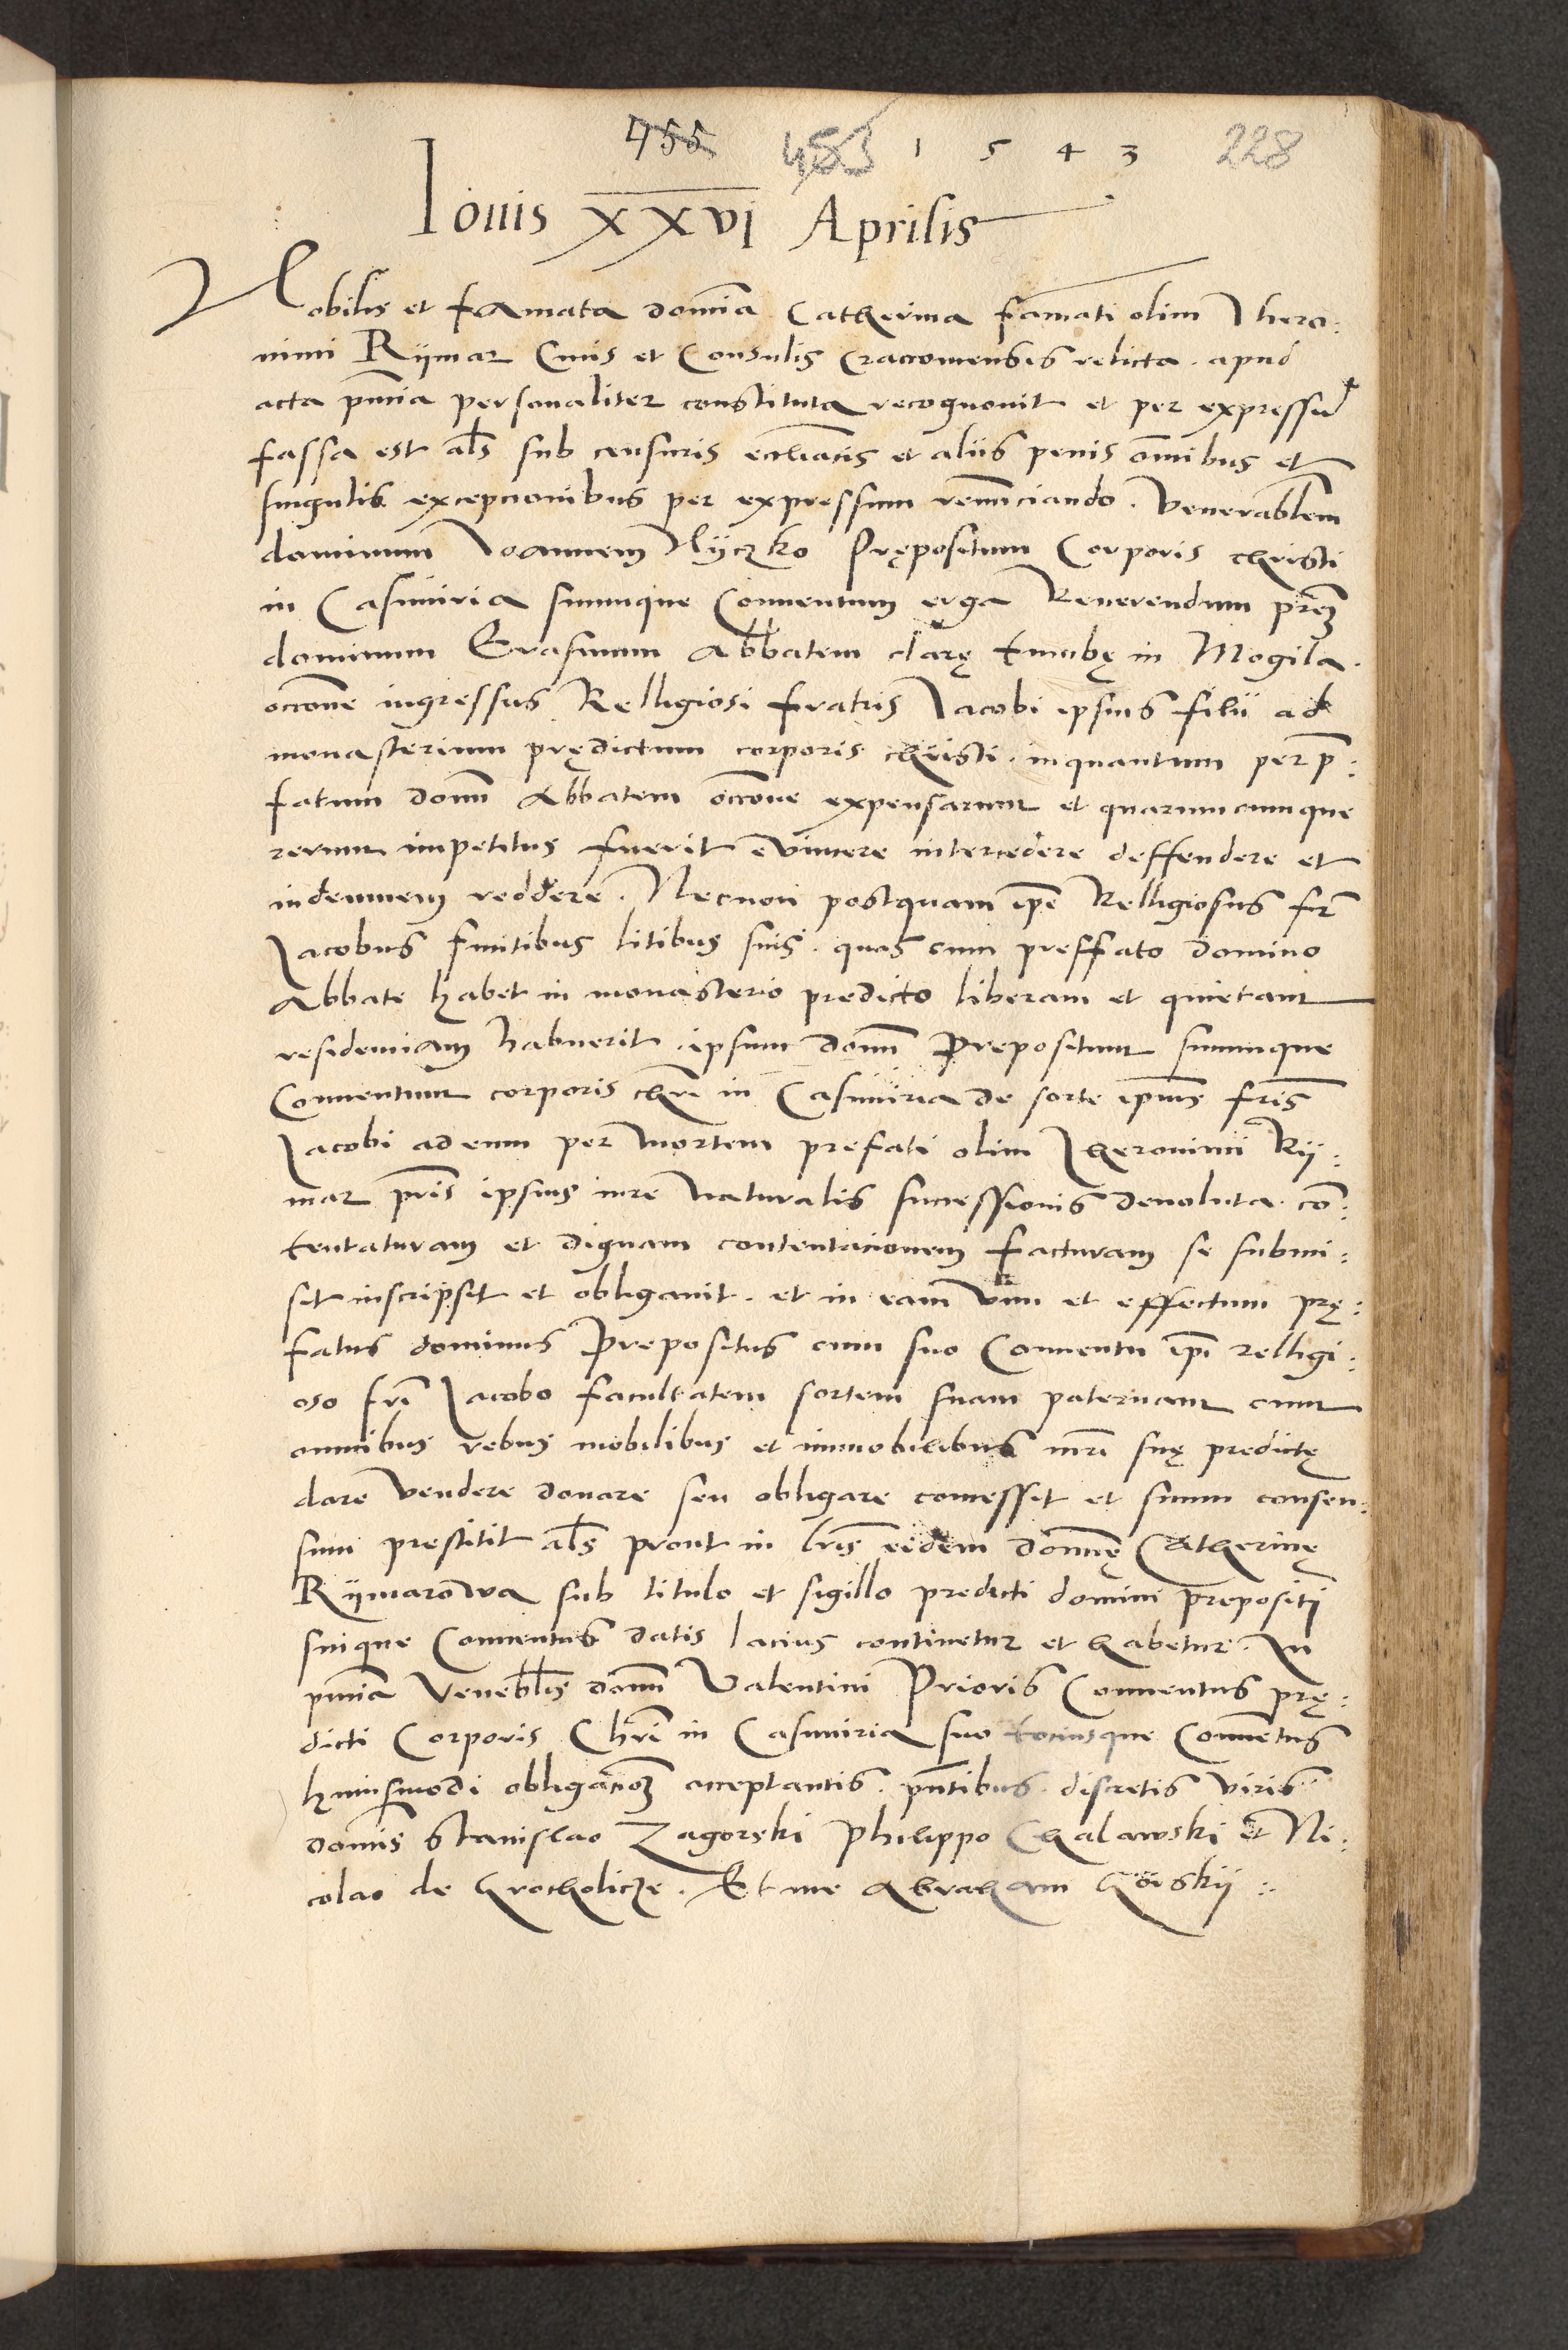 455 453 1 5 4 3 228
Iovis XXVI Aprilis
Nobilis et famata domīa Catherina famati olim Ihero:
nimi Rijmar Civis et Consulis Craccoviensis relicta. apud
acta pn̄cia personaliter constituta recognovit et per expressū
fassa est als̄ sub censuris eccliāticis et aliis penis om̄ibus et
singulis excepcionibus per expressum renūnciando. Venerabl̄em
dominum Ioannem Nijczko Pręposit­um Corporis christi
in Casimiria suumque Conventum erga Reverendum prēm
dominum Erasmum Abbatem clarę tumbę in Mogila.
occ̄one ingressus Relligiosi fratris Iacobi ipsius filii ad
monasterium prędictum corporis christi. inquantum per p̄:
fatum domn̄ Abbatem occ̄one expensarum et quarumcumque
rerum impetitus fuerit evincere intercedere deffendere et
indemnem reddere. Necnon postquam ip̄e Relligiosus fr̄
Iacobus finitibus litibus suis. quas cum preffato domino
Abbate habet in monasterio predicto liberam et quietam
residenciam habuerit. ipsum domn̄ Prepositum suumque
Conventum corporis chrī in Casimiria de sorte ip̄ius fr̄is
Iacobi ad eum per mortem prefati olim Iheronimi Rij:
mar pr̄is ipsius iure naturalis successionis devoluta. cō:
tentaturam et dignam contentacionem facturam se submi:
sit inscripsit et obligavit. et in eam vim et effectum prę:
fatus dominus Prepositus cum suo Conventu ip̄i relligi:
oso fr̄i Iacobo facultatem sortem suam paternam cum
omnibus rebus mobilibus et immobilibus mr̄i suę predictę
dare vendere donare seu obligare concessit et suum consen:
sum prestitit als̄ prout in lr̄is eidem domn̄ę Catherinę
Rijmarowa sub titulo et sigillo predicti domini prepositi
suique Conventus datis lacius continetur et habetur. In
pn̄cia Venebl̄is domn̄ Valentini Prioris Conventus prę:
dicti Corporis Chrī in Casimiria suo tociusque Convētus
huiusmodi obligac̄oem acceptantis. pn̄tibus. discretis viris
domīs Stanislao Zagorski Philippo Chalawski et Ni:
colao de Grocholicze. Et me Abraham Gorskij